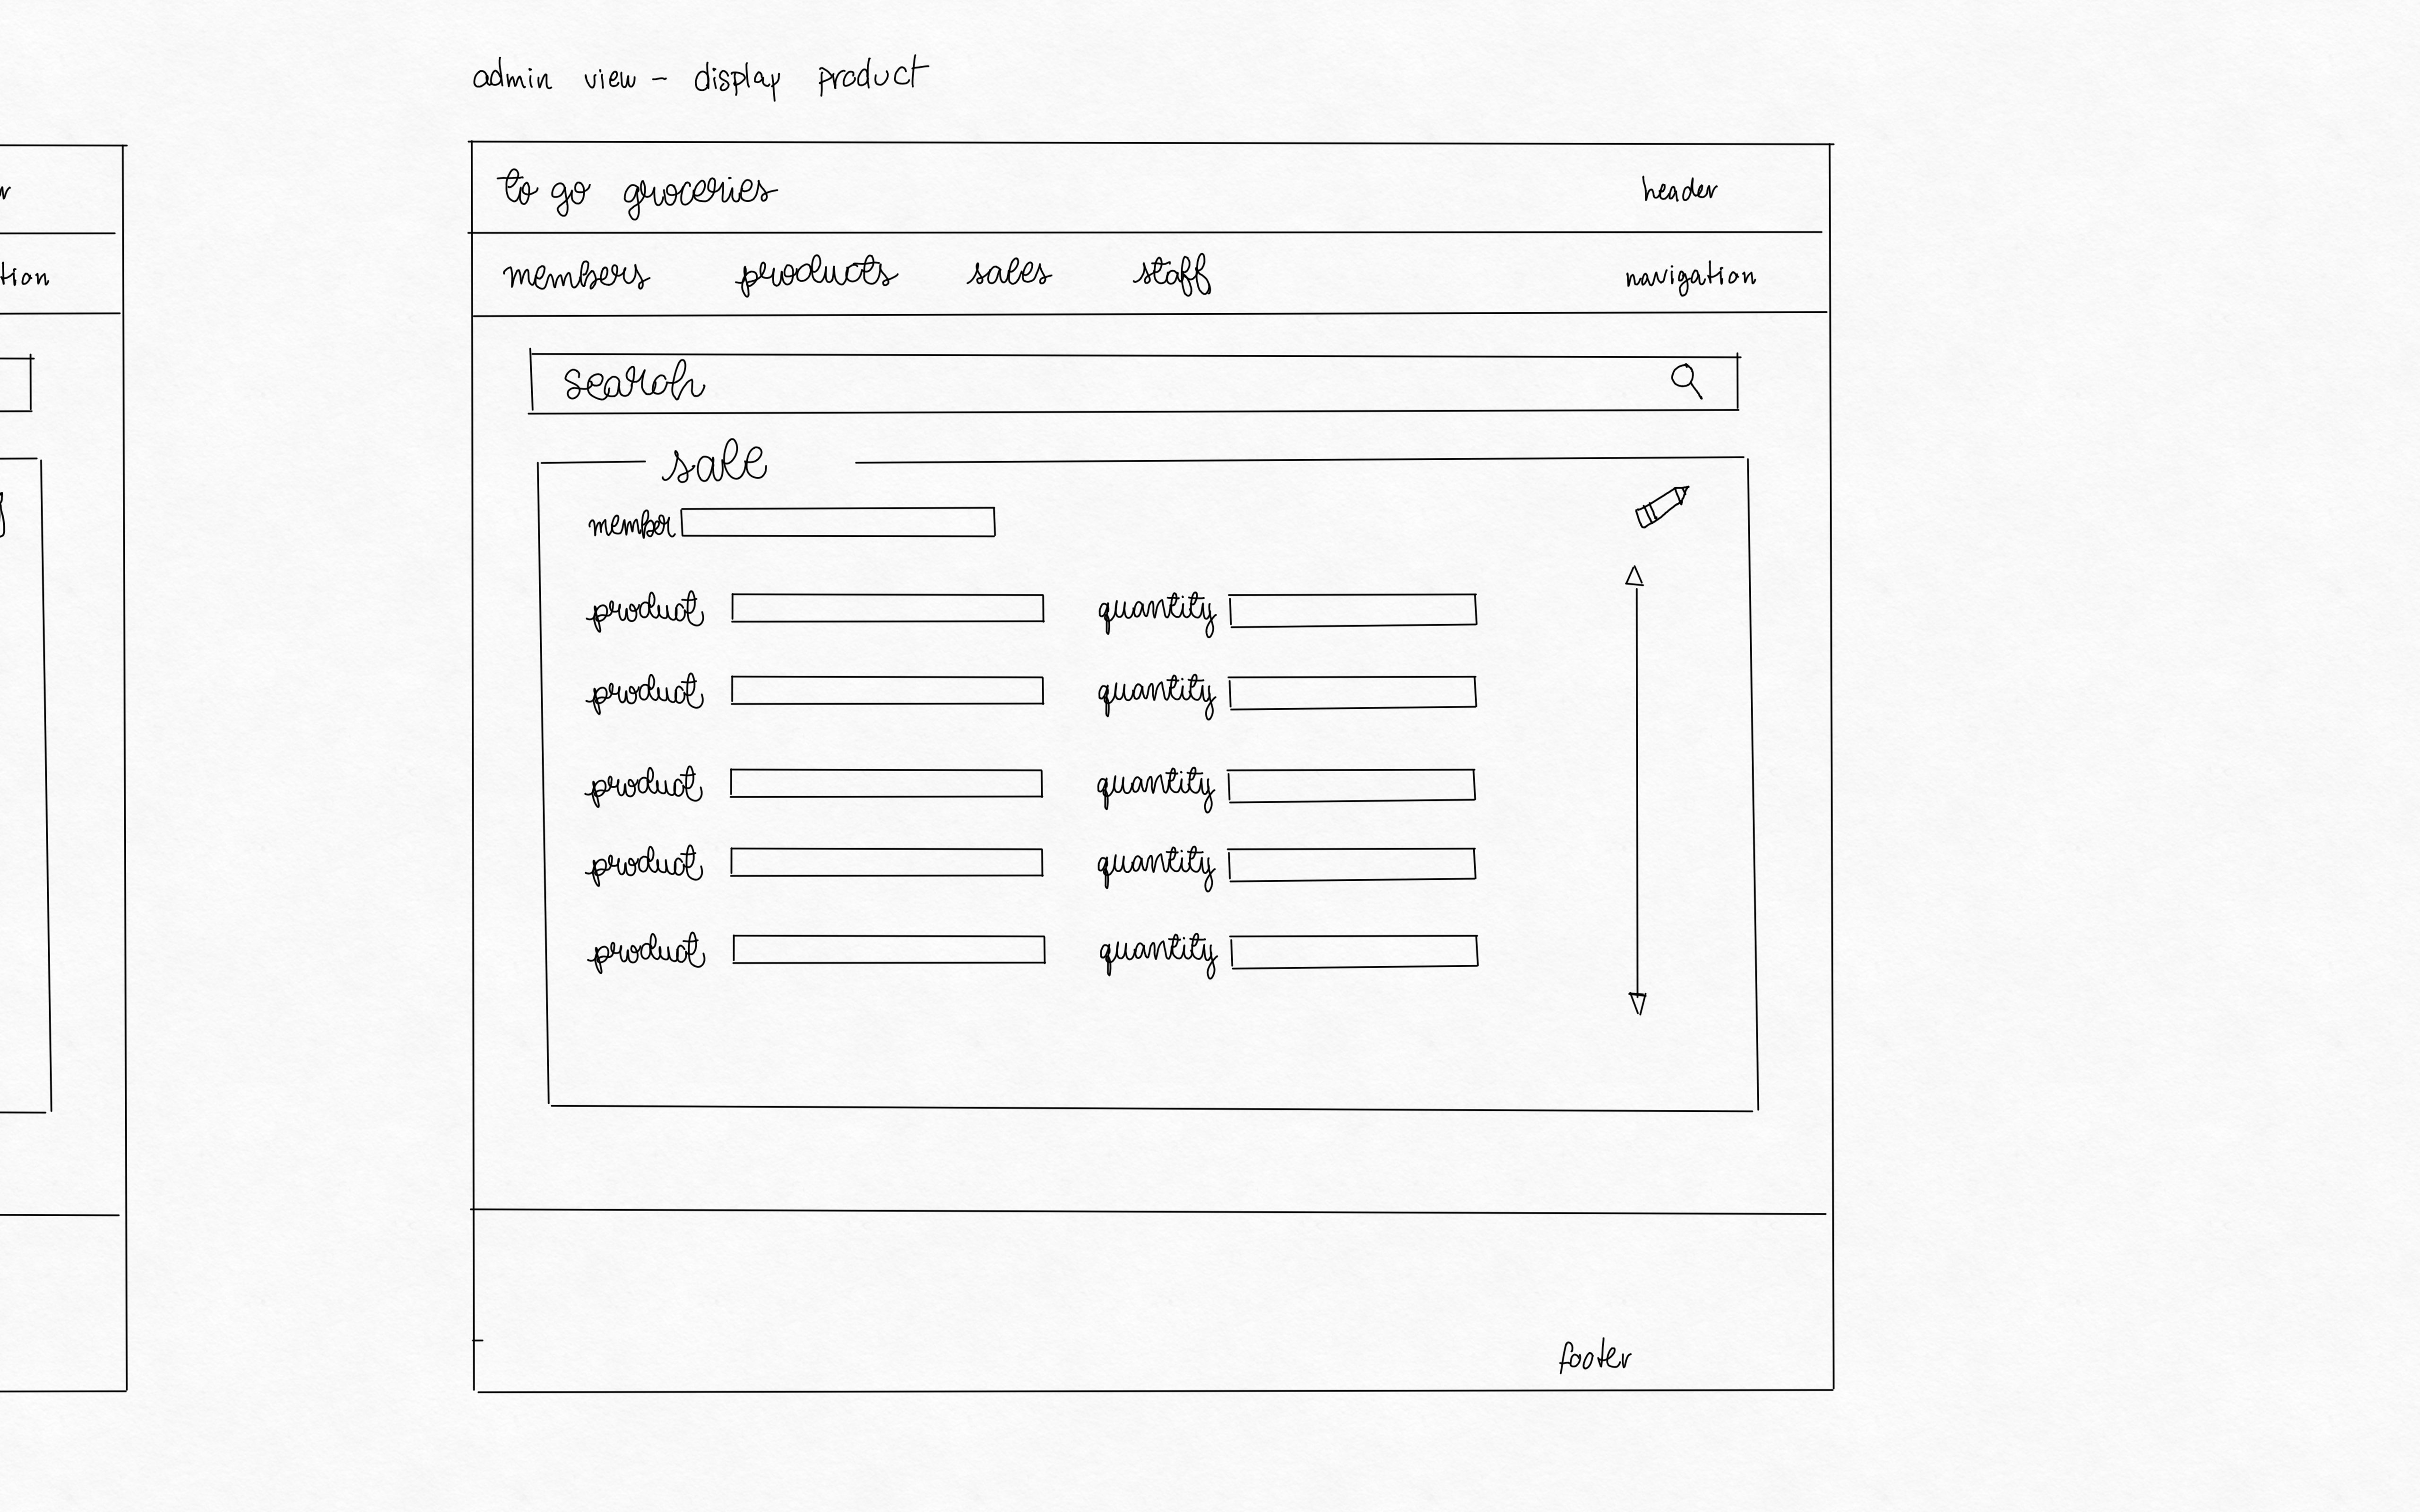 admin view - display product
to go groceries header
members products sales staff navigation
tion
search
sale
member
product quantity
product quantity
product quantity
product quantity
product quantity
footer